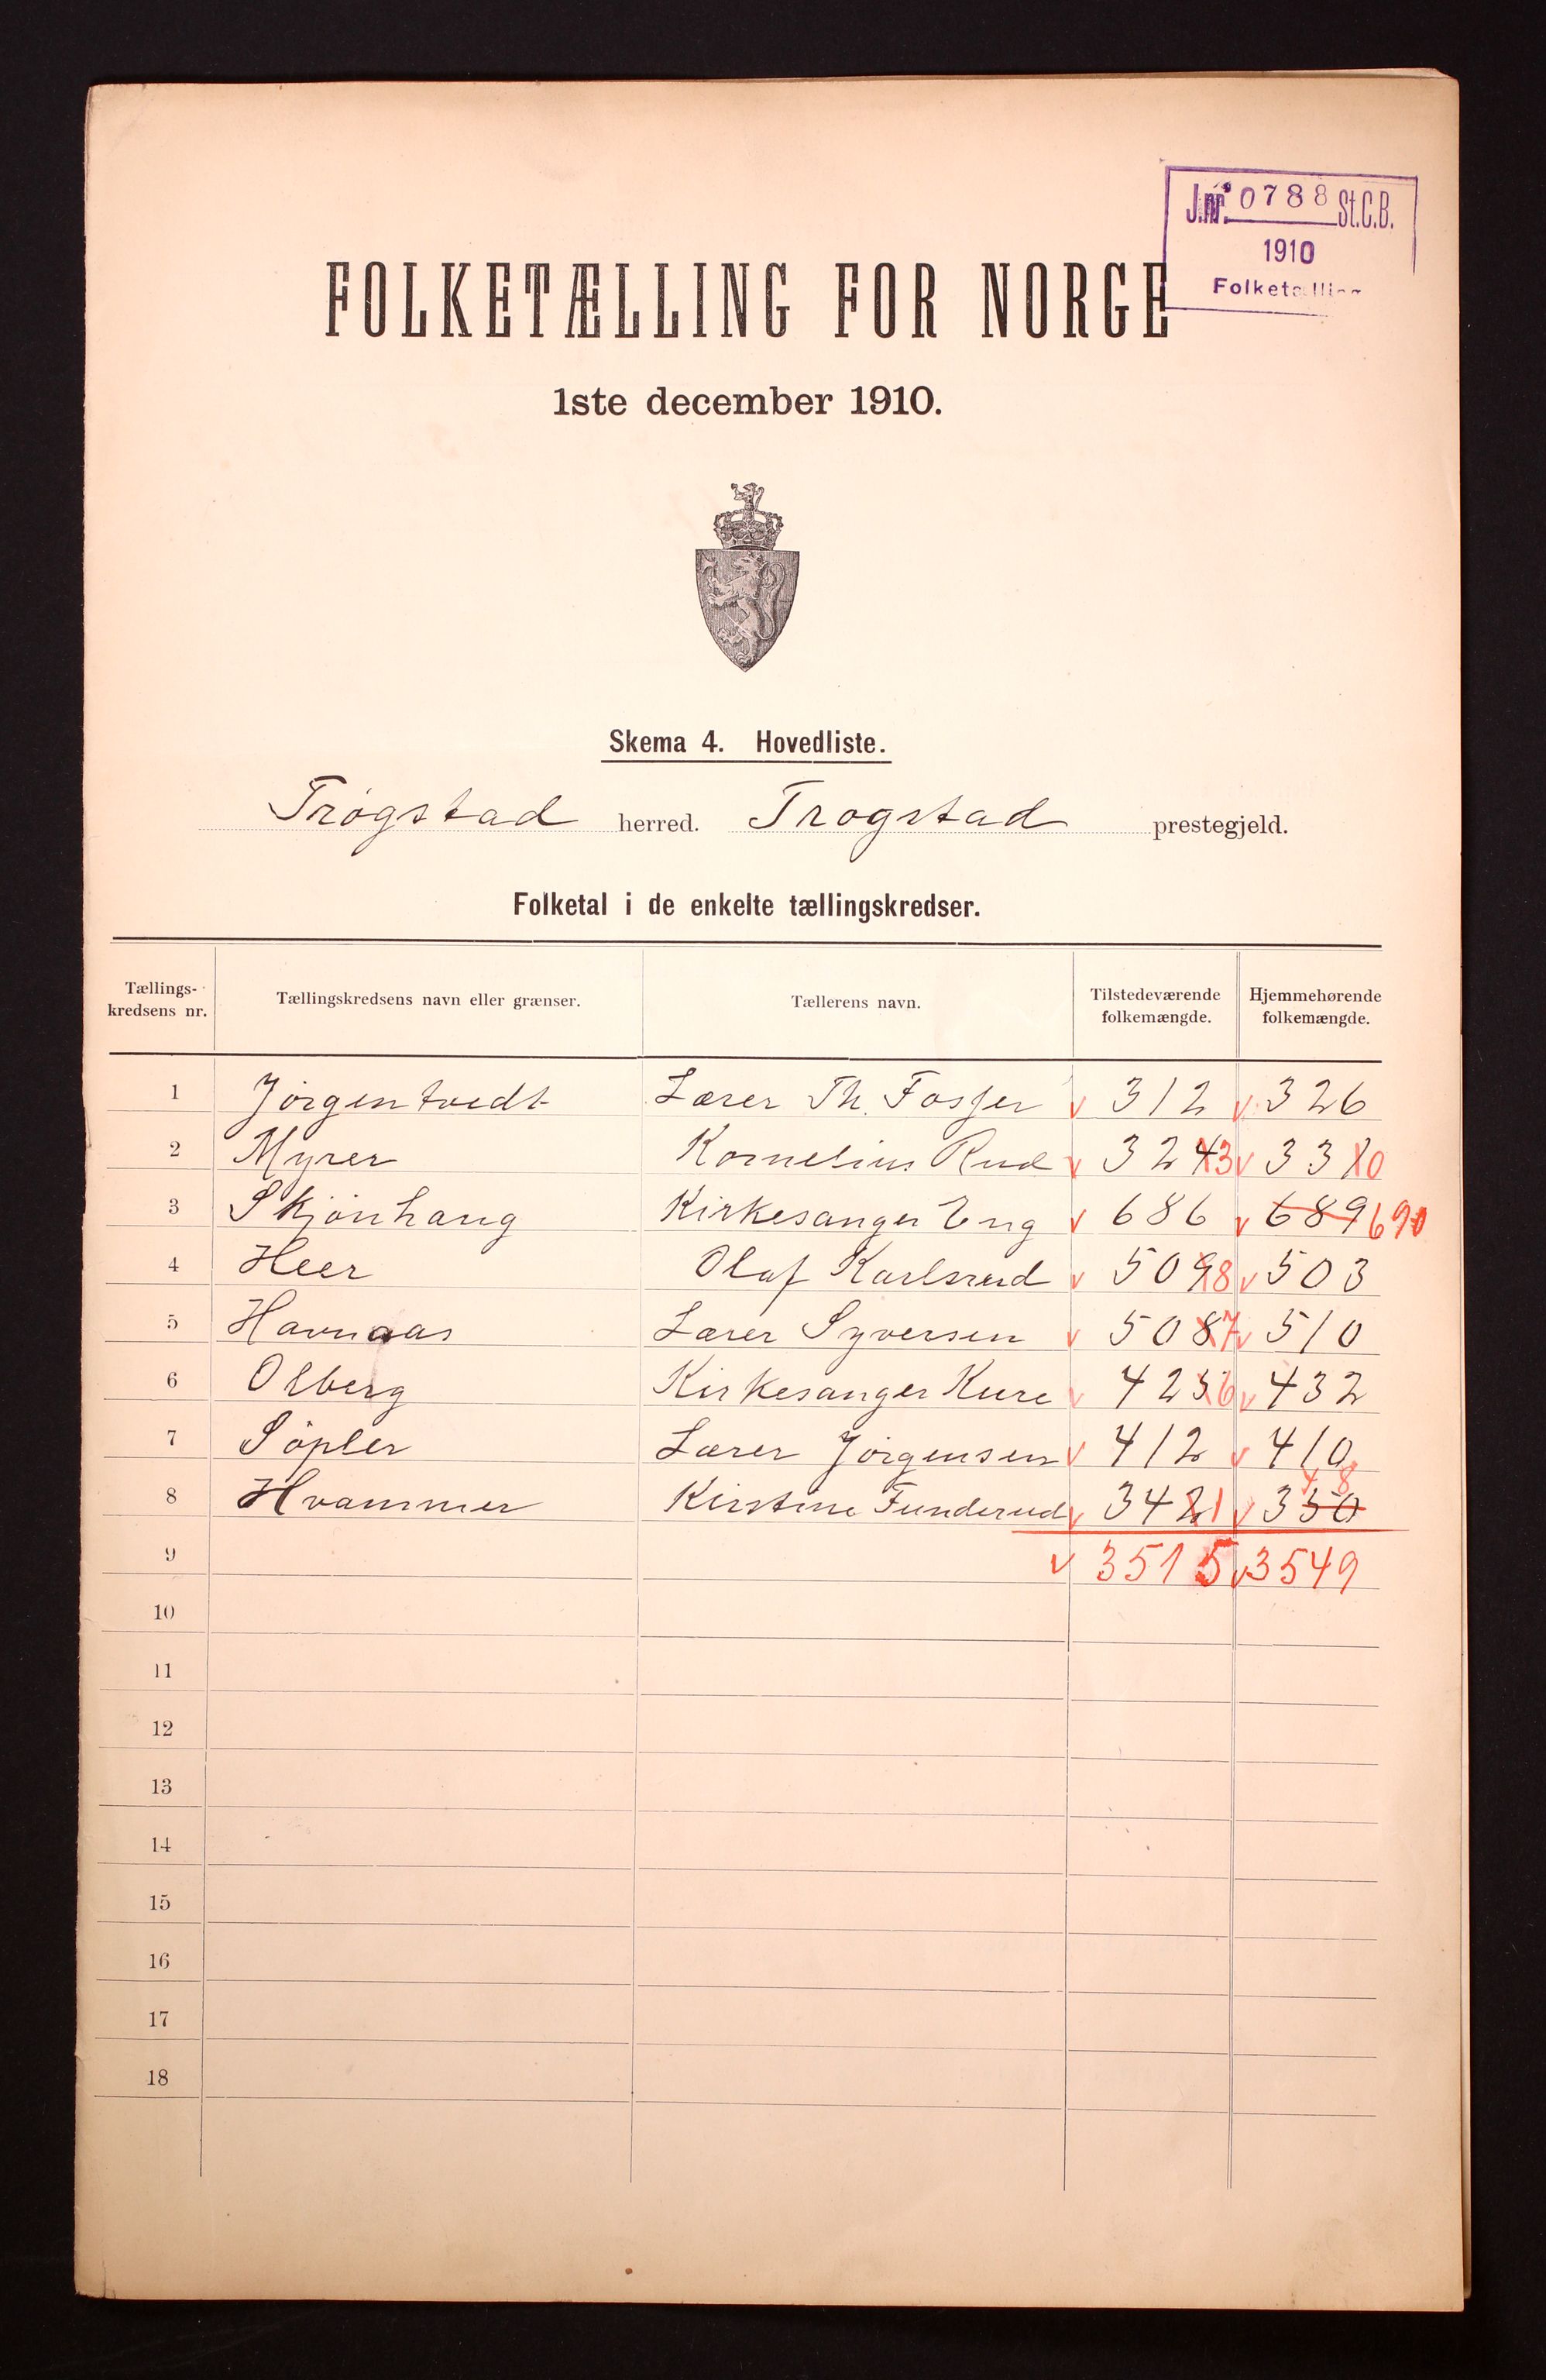 J.nr. 0788 St.C.B.
1910
Folketælling
FOLKETÆLLING FOR NORGE
1ste december 1910.
Skema 4. Hovedliste.
Trøgstad herred. Trøgstad prestegjeld.
Folketal i de enkelte tællingskredser.
Tællings-kredsens nr. Tællingskredsens navn eller grænser. Tællerens navn. Tilstedeværende folkemængde. Hjemmehørende folkemængde.
1 Jørgentvedt Lærer Th. Fosser v 312 v 326
2 Myrer Kornelius Rud v 3243 v 3310
3 Skjønhaug Kirkesanger Eng v 686 v 689 690
4 Heer Olaf Karlsrud v 5098 v 503
5 Havnaas Lærer Syversen v 5087 v 510
6 Olberg Kirkesanger Kure v 4256 v 432
7 Søpler Lærer Jørgensen v 412 v 410
8 Hvammer Kirstine Funderud v 3421 v 350 48
9 v 3515 v 3549
10
11
12
13
14
15
16
17
18